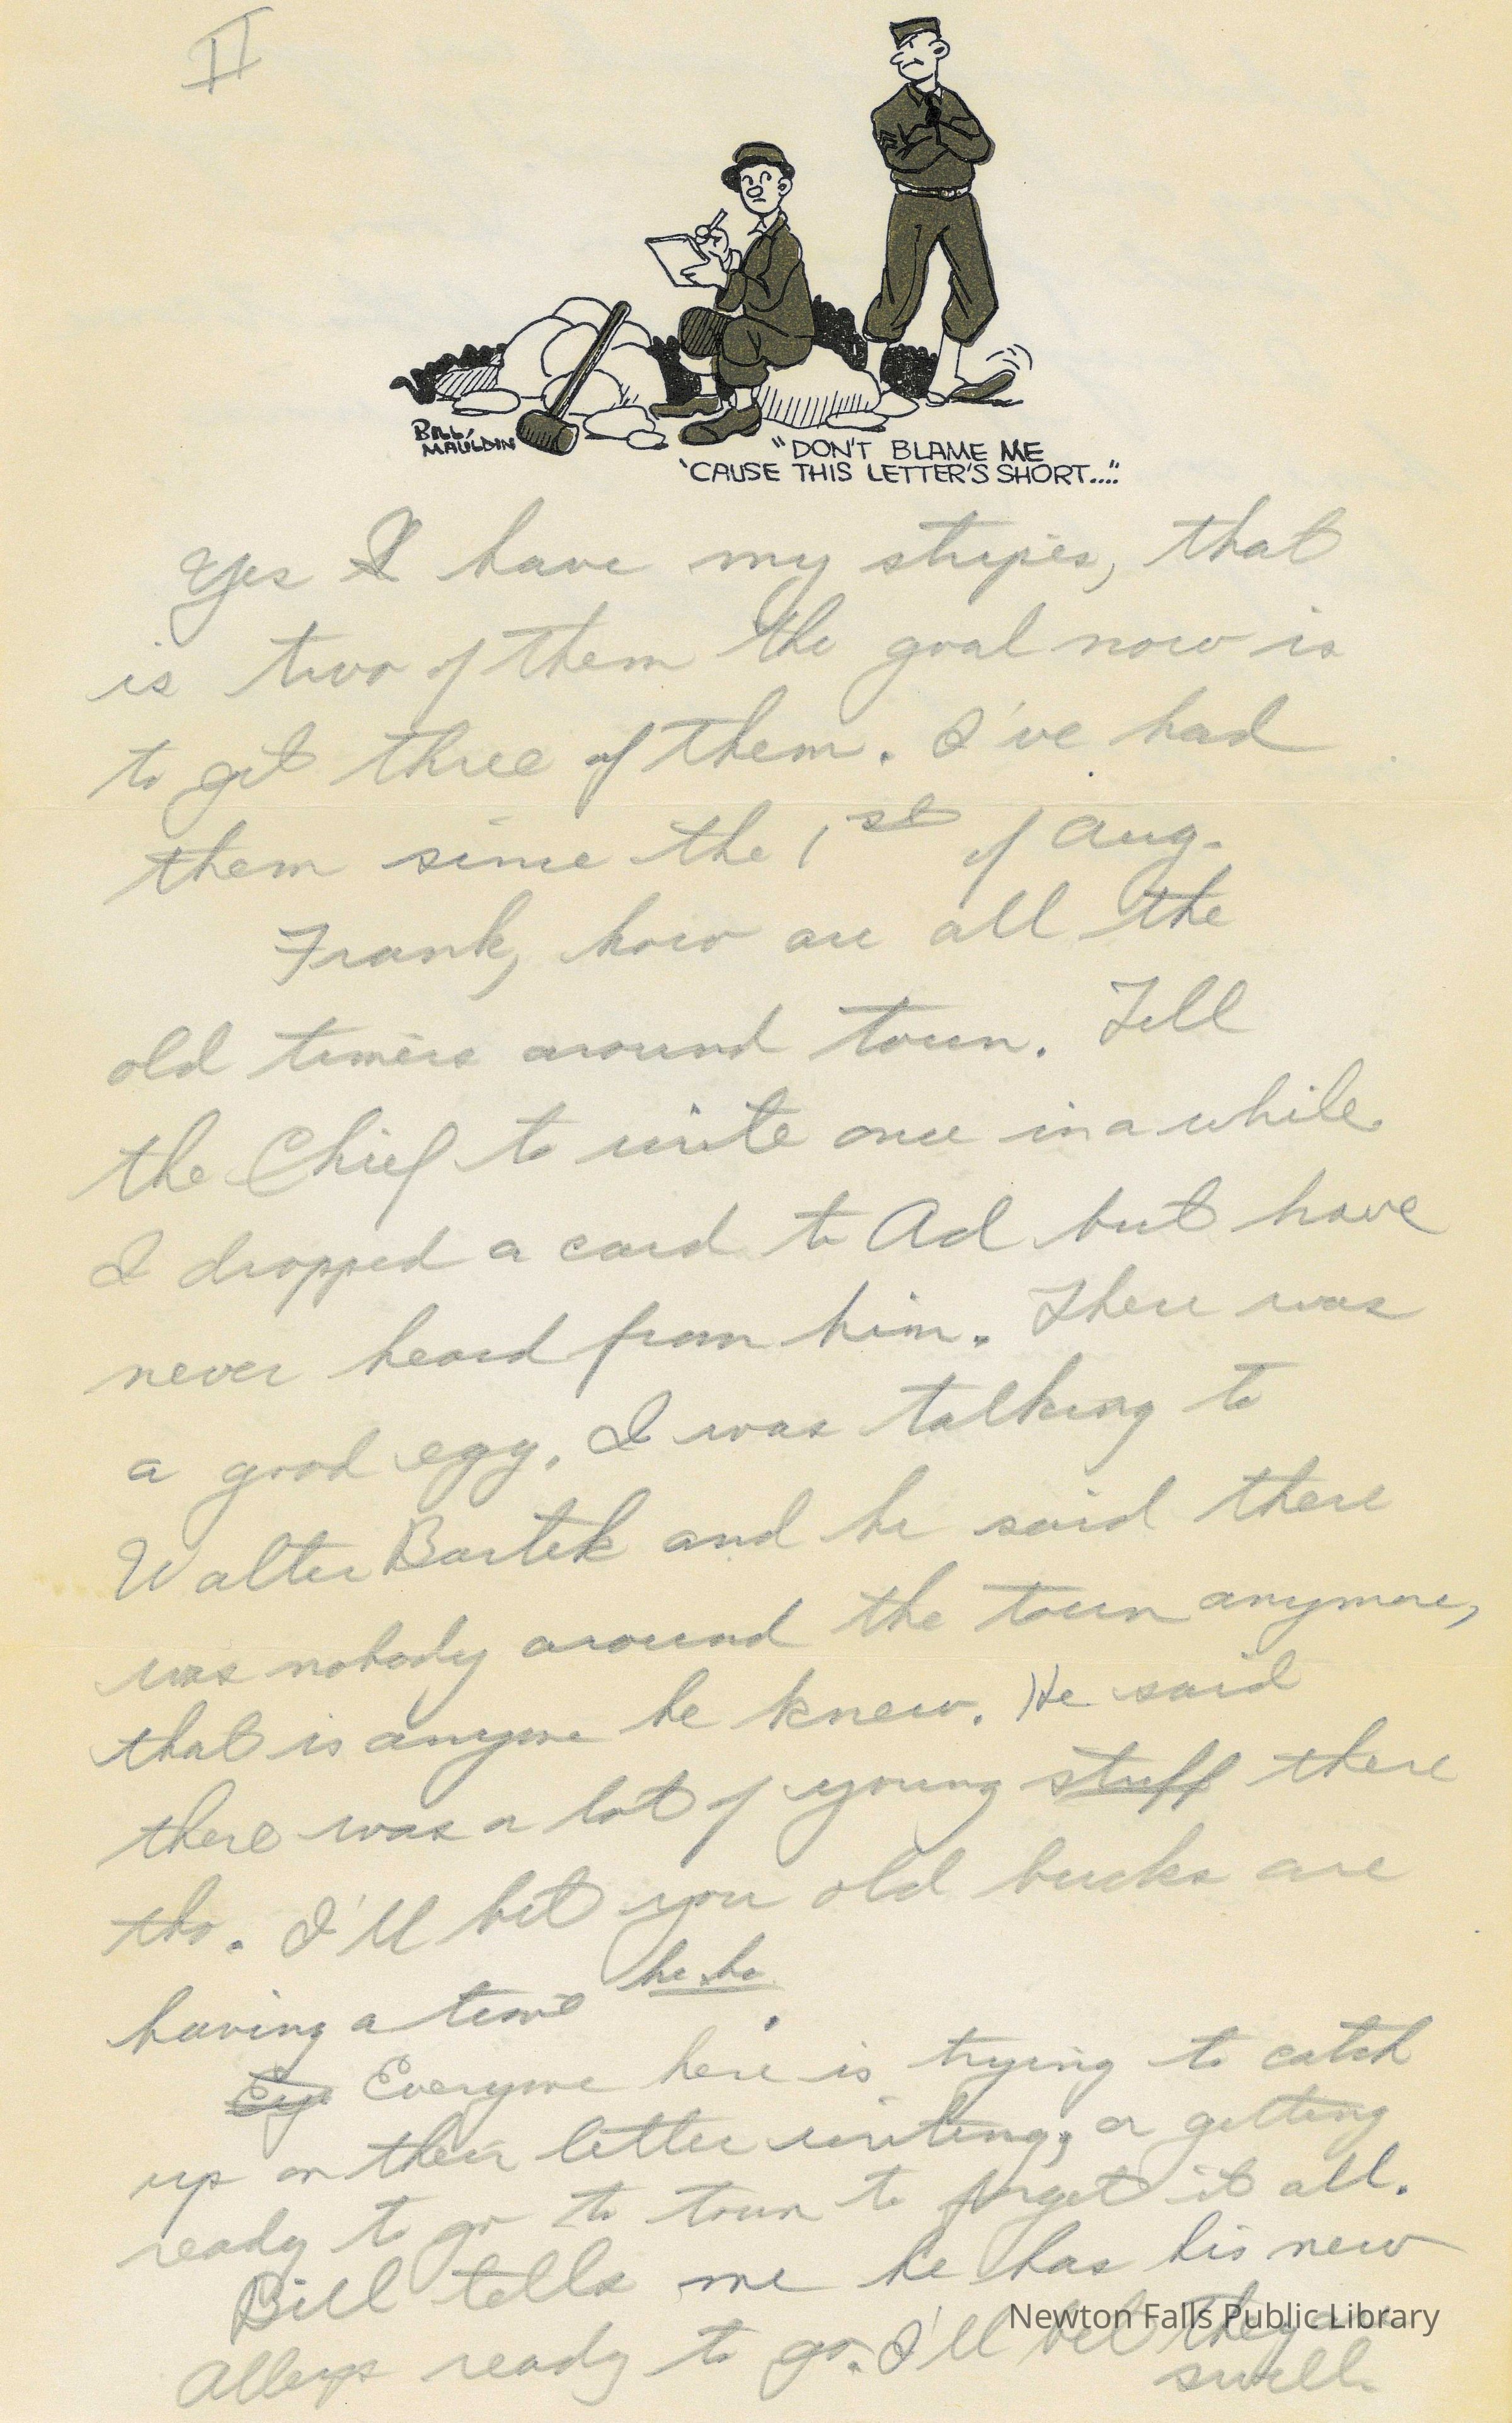 II
BILL MAULDIN
"DON'T BLAME ME
'CAUSE THIS LETTER'S SHORT...."
Yes I have my stripes, that
is two of them the goal now is
to get three of them. I've had
them since the 1st of Aug.
Frank, how are all the
old timers around town. Tell
the Chief to write once in a while.
I dropped a card to Ad but have
never heard from him. There was
a good egg. I was talking to
Walter Bartek and he said there
was nobody around the town anymore,
that is anyone he knew. He said
there was a lot of young stuff there
tho. I'll bet you old bucks are
having a time he.he.
Everyone here is trying to catch
up on their letter writing, or getting
ready to go to town to forget it all.
Bill tells me he has his new
Alleys ready to go. I'll bet they are
swell.
Newton Falls Public Library